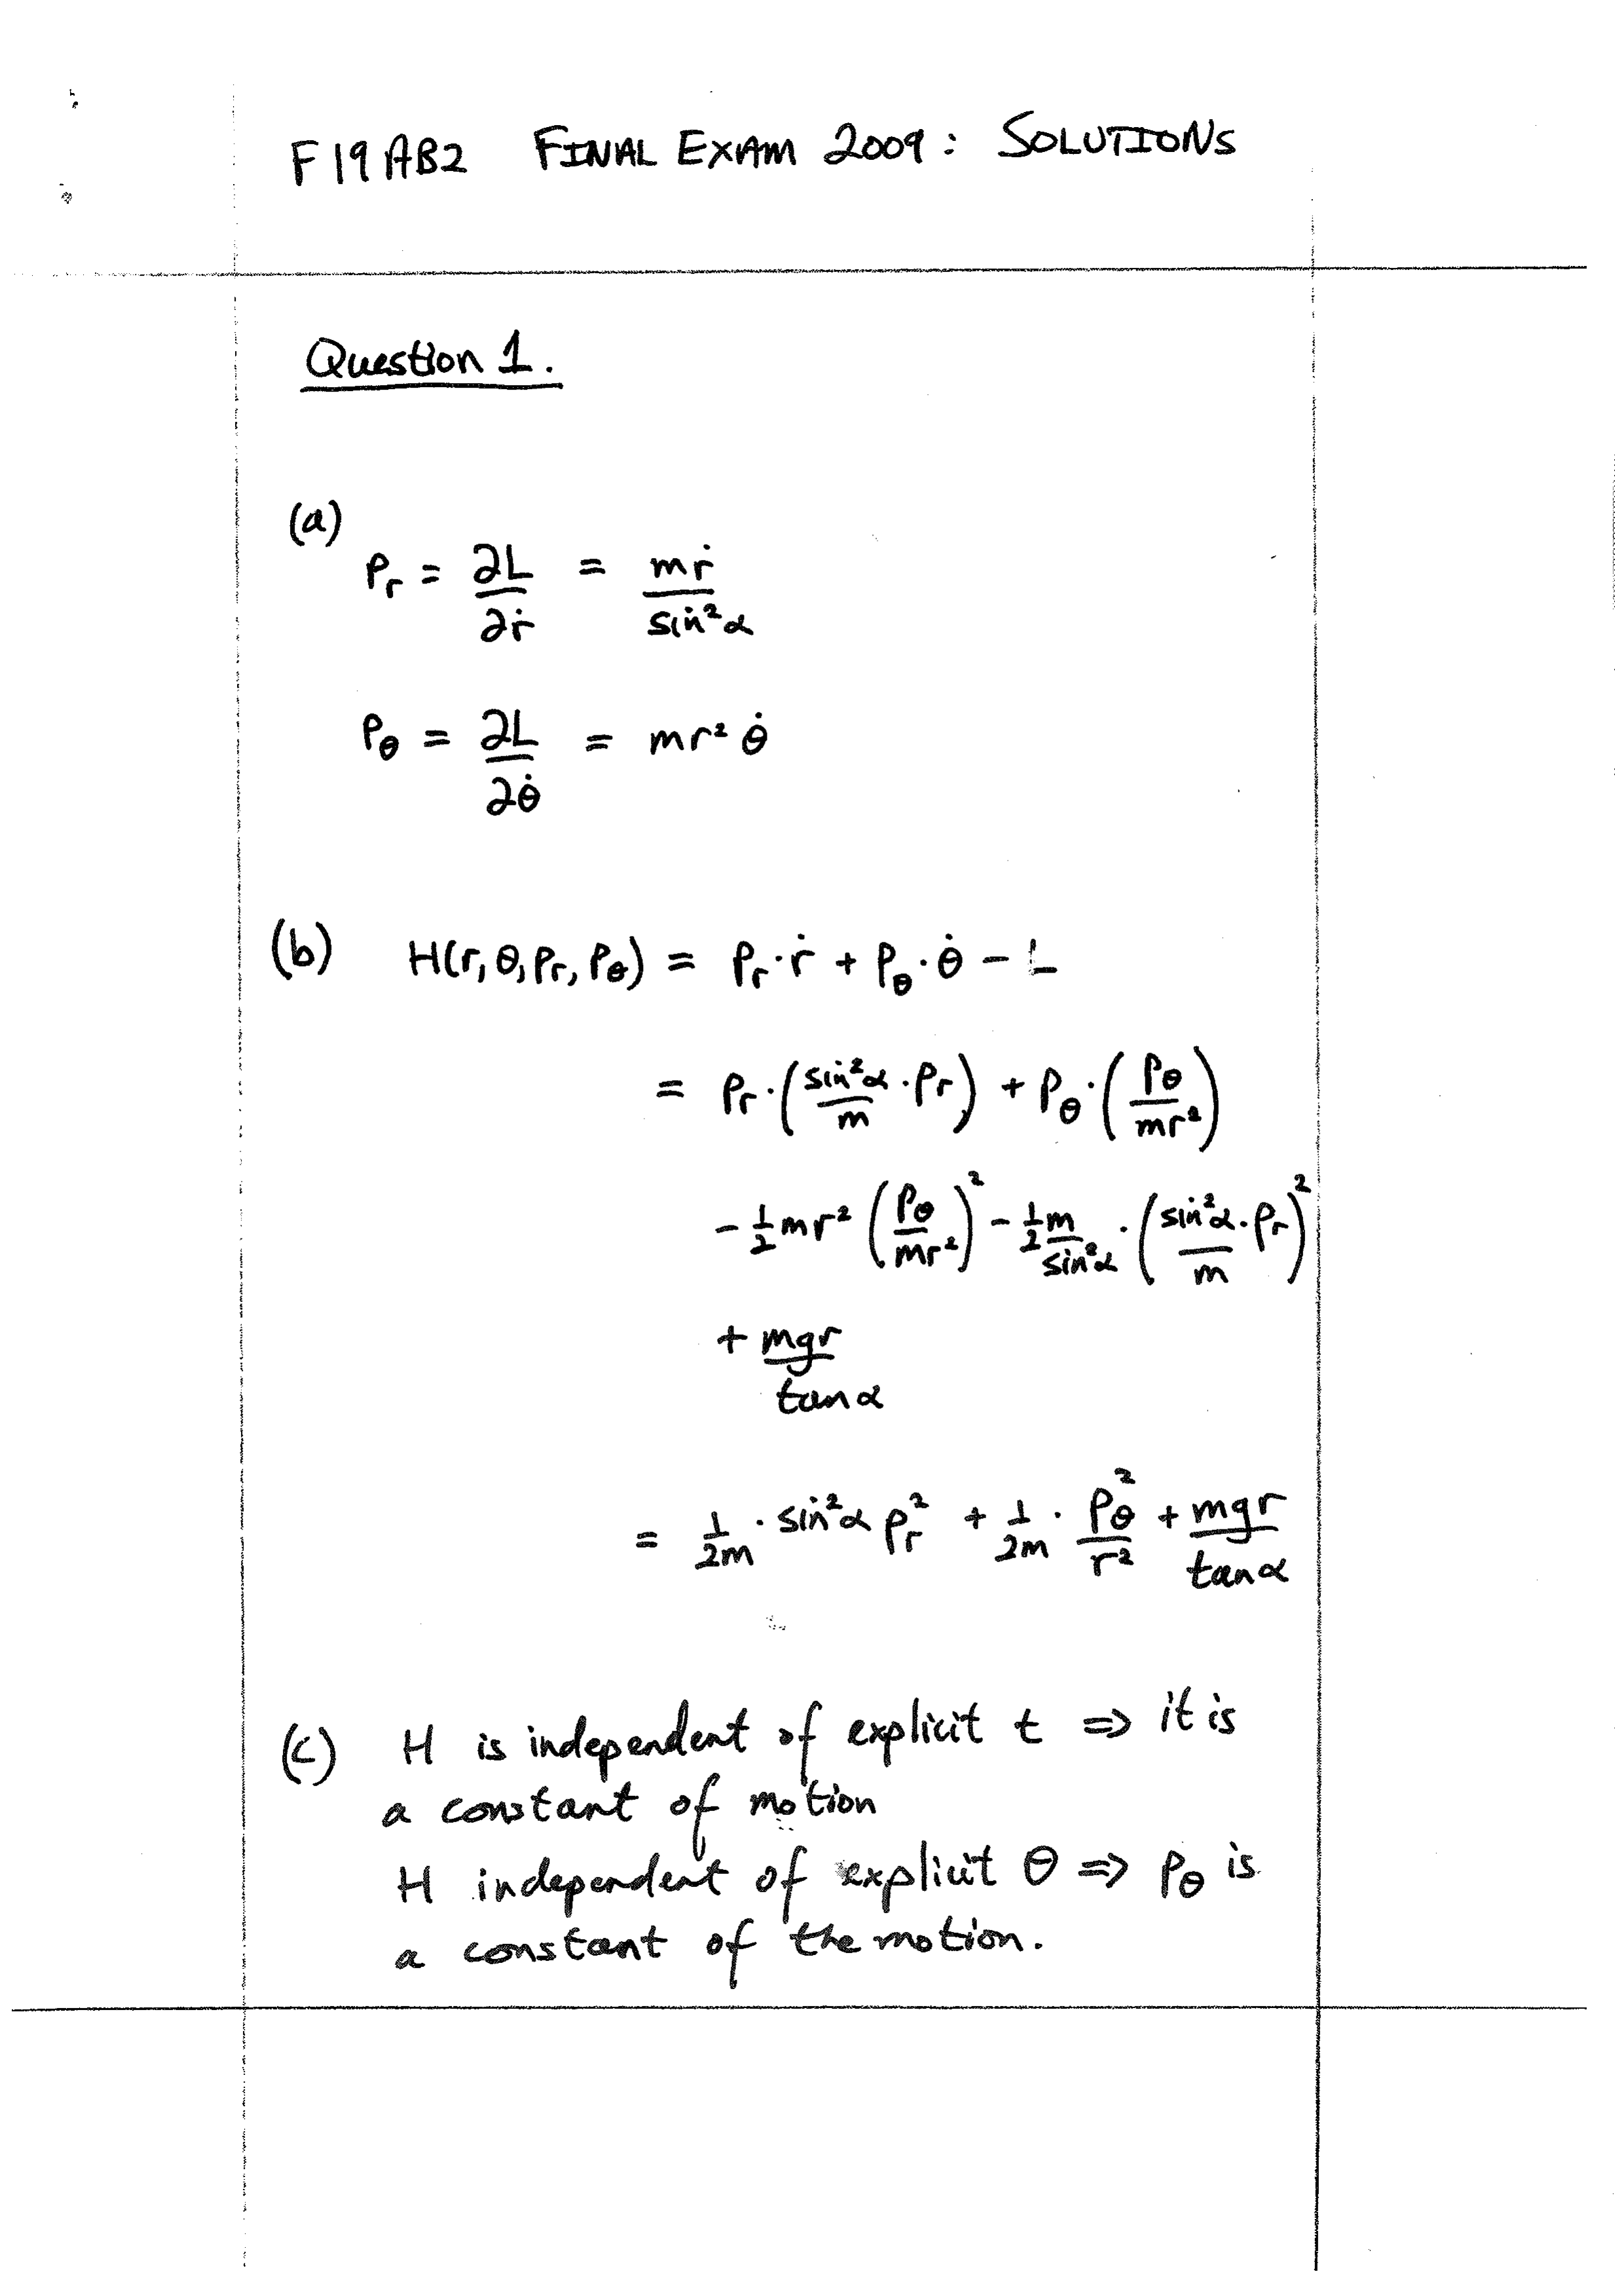 F19AB2 FINAL EXAM 2009: SOLUTIONS
Question 1.
(a)
p_r = ∂L/∂ṙ = mṙ/sin²α
p_θ = ∂L/∂θ̇ = mr²θ̇
(b) H(r, θ, p_r, p_θ) = p_r·ṙ + p_θ·θ̇ - L
= p_r·(sin²α/m·p_r) + p_θ·(p_θ/mr²)
- ½mr²(p_θ/mr²)² - ½m/sin²α·(sin²α·p_r/m)²
+ mgr/tanα
= 1/2m·sin²α p_r² + 1/2m·p_θ²/r² + mgr/tanα
(c) H is independent of explicit t ⇒ it is
a constant of motion
H independent of explicit θ ⇒ p_θ is
a constant of the motion.